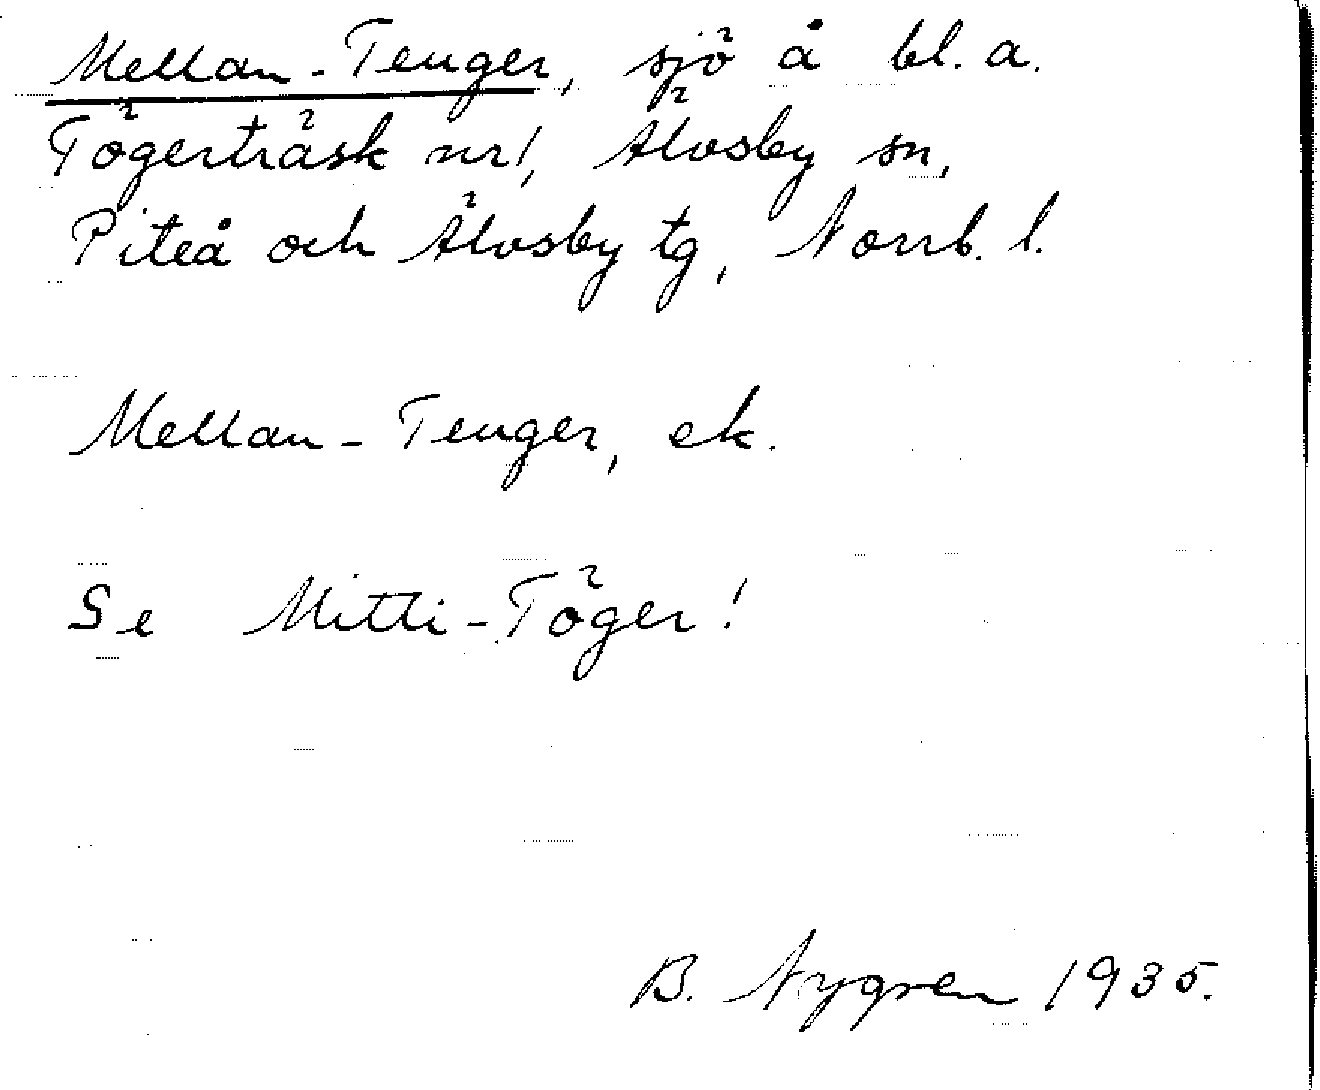 Mellan-Tenger, sjö å bl. a.
Tögerträsk nr 1, Älvsby sn,
Piteå och Älvsby tg, Norrb. l.
Mellan-Tenger, ek.
Se Mitti-Töger!
B. Nygren 1935.